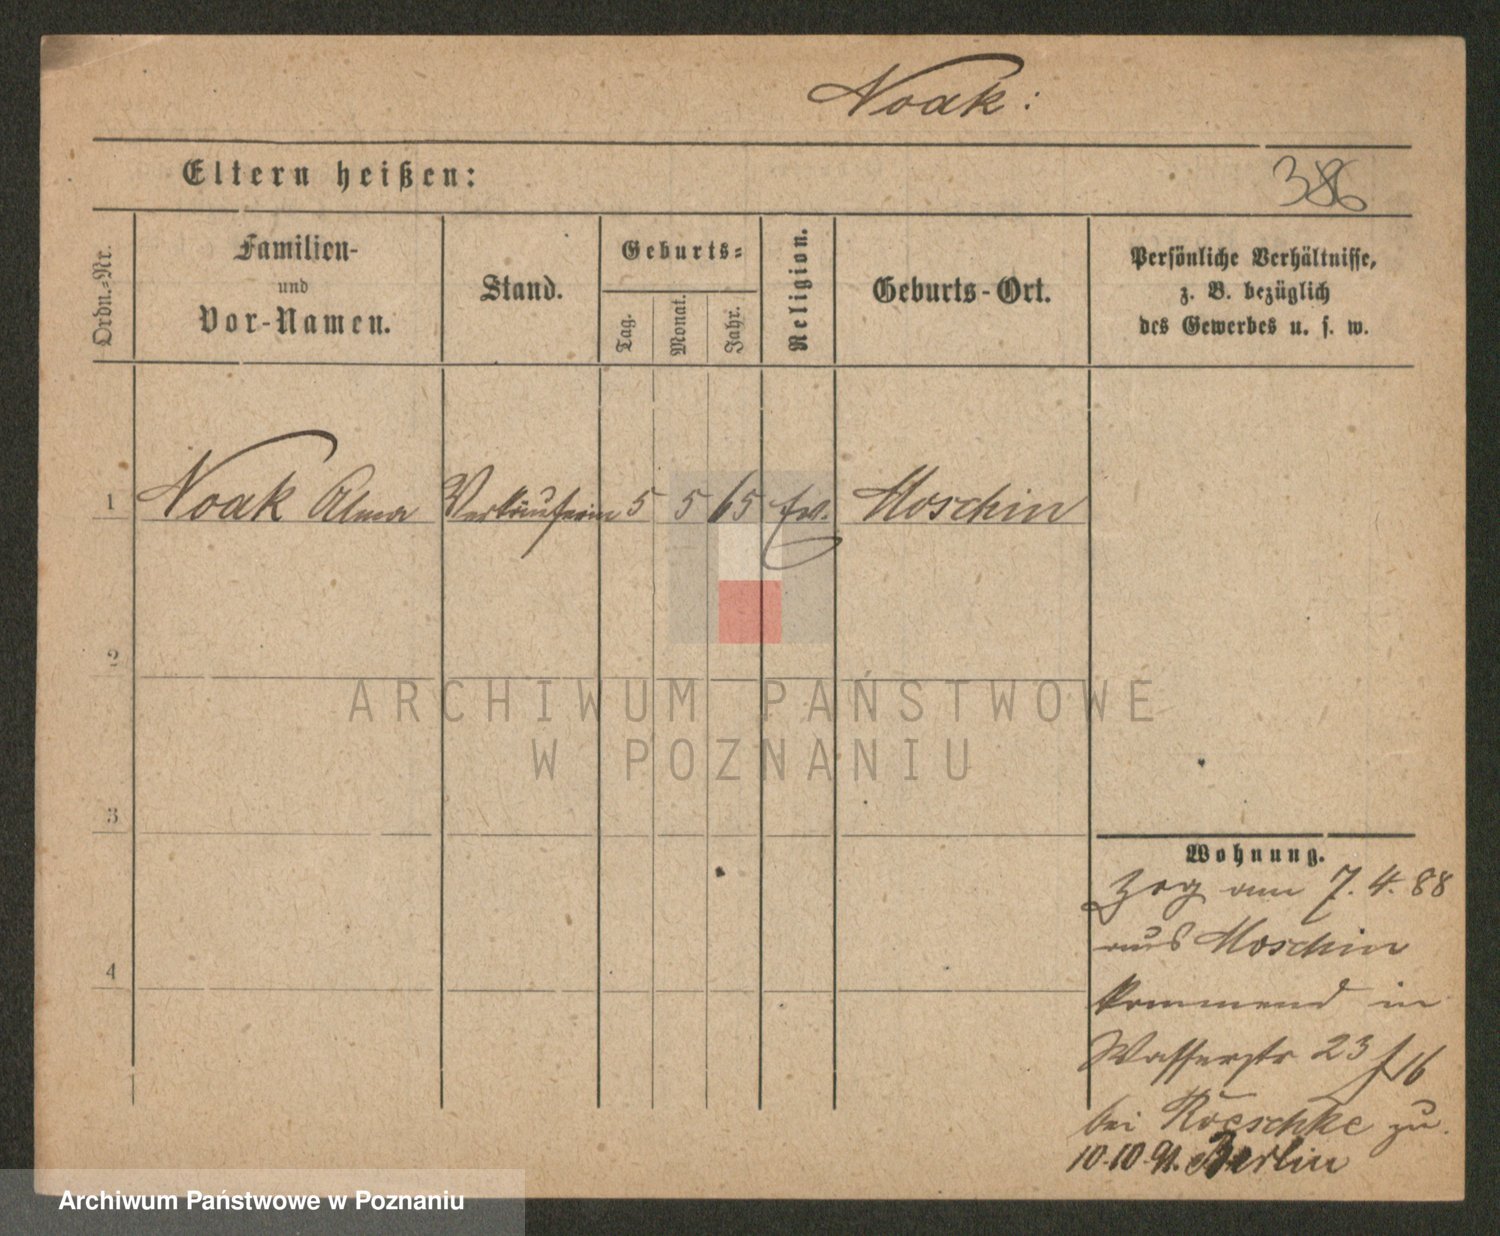 Noak:
Eltern heißen:
386
Ordn.-Nr.
Familien-
und
Vor-Namen.
Stand.
Geburts-
Tag.
Monat.
Jahr.
Religion.
Geburts-Ort.
Persönliche Verhältnisse,
z. B. bezüglich
des Gewerbes u. s. w.
1 Noak Alma Verkäuferin 5 5 65 ev. Moschin
2
3
4
Wohnung.
Zog am 7.4.88
aus Moschin
kommend in
Wasserstr 23
bei Roeschke zu.
10.10.91. Berlin
ARCHIWUM PAŃSTWOWE
W POZNANIU
Archiwum Państwowe w Poznaniu